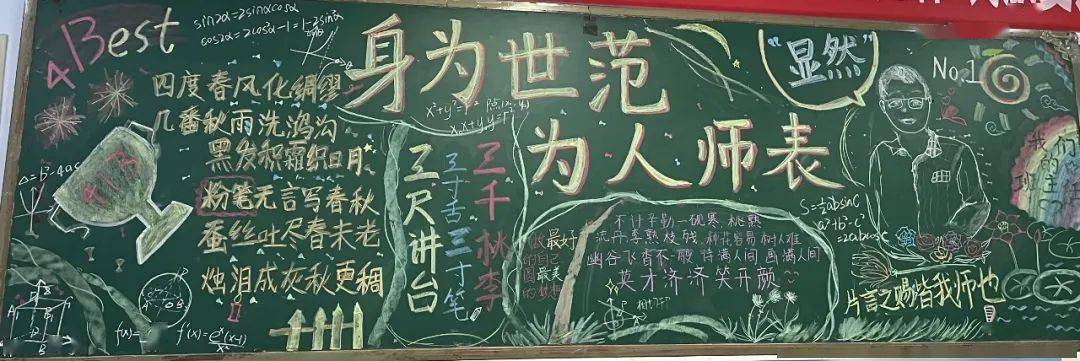 Best
sin2α=2sinαcosα
cos2α=2cos²α-1=1-2sin²α
四度春风化绸缪
几番秋雨洗鸿沟
黑发积霜织日月
粉笔无言写春秋
蚕丝吐尽春未老
烛泪成灰秋更稠
身为世范
为人师表
三尺讲台
三寸舌三寸笔
三千桃李
"显然"
No.1
我们
的
班主任
S=½absinC
a²+b²-c²
=2abcosC
最好
的自己
最美
不计辛勤一砚寒 桃熟
流丹李熟枝残 种花容易 树人难
幽谷飞香不一般 诗满人间 画满人间
英才济济笑开颜
片言之赐皆我师也
f(x)=